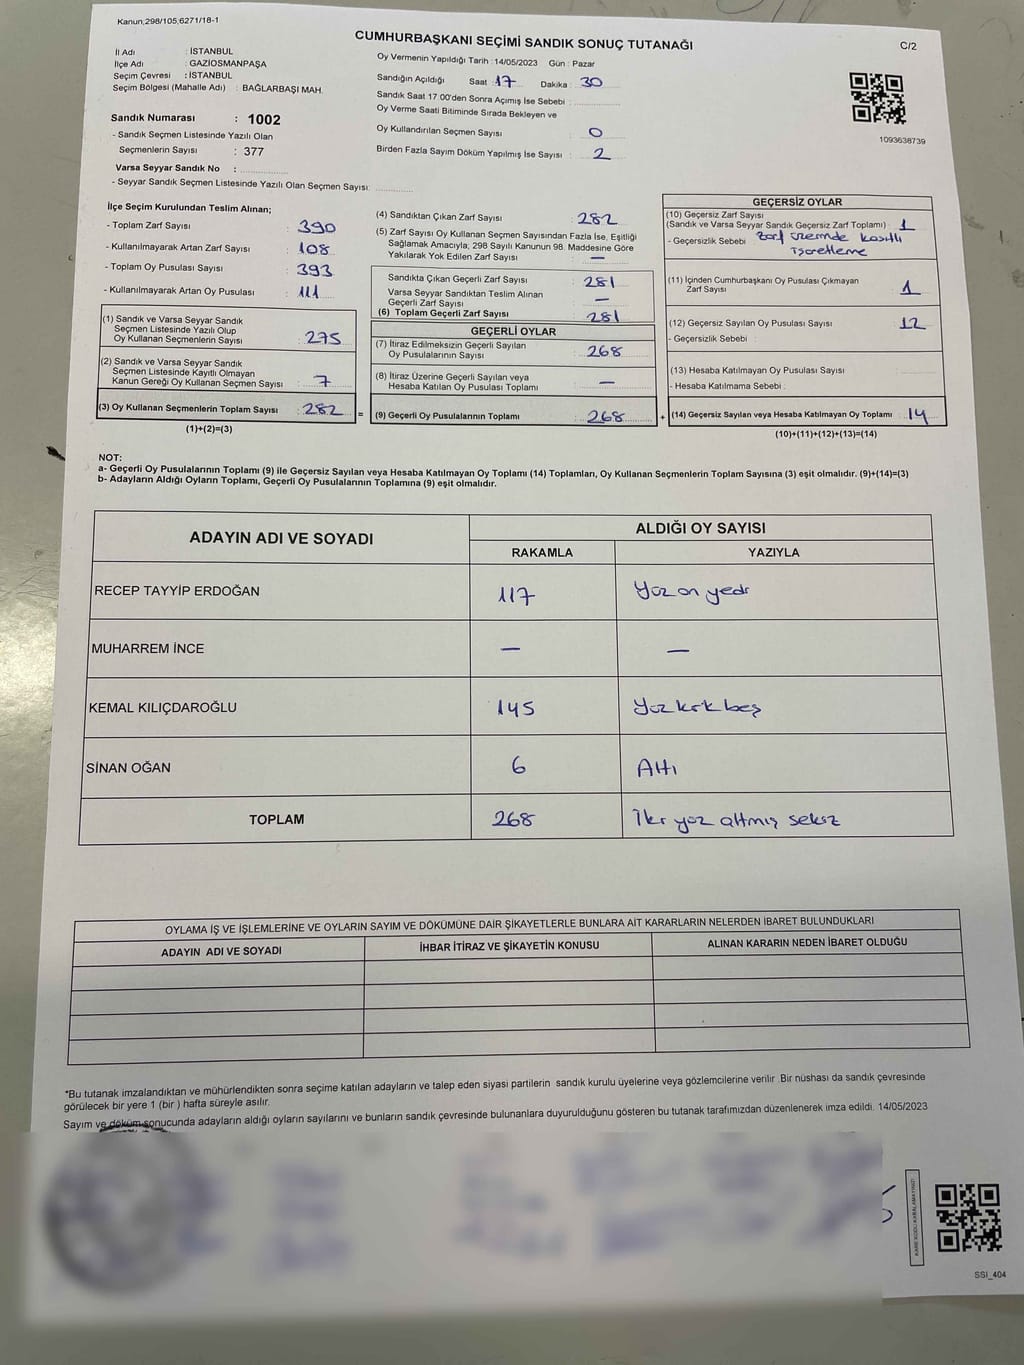 Kanun,298/105,6271/18-1
CUMHURBAŞKANI SEÇİMİ SANDIK SONUÇ TUTANAĞI
C/2
İl Adı : İSTANBUL
İlçe Adı : GAZİOSMANPAŞA
Seçim Çevresi : İSTANBUL
Seçim Bölgesi (Mahalle Adı) : BAĞLARBAŞI MAH.
Sandık Numarası : 1002
- Sandık Seçmen Listesinde Yazılı Olan
Seçmenlerin Sayısı : 377
Varsa Seyyar Sandık No :
- Seyyar Sandık Seçmen Listesinde Yazılı Olan Seçmen Sayısı:
Oy Vermenin Yapıldığı Tarih : 14/05/2023 Gün : Pazar
Sandığın Açıldığı Saat : 17 Dakika : 30
Sandık Saat 17:00'den Sonra Açımış İse Sebebi :
Oy Verme Saati Bitiminde Sırada Bekleyen ve
Oy Kullandırılan Seçmen Sayısı : 0
Birden Fazla Sayım Döküm Yapılmış İse Sayısı : 2
1093638739
İlçe Seçim Kurulundan Teslim Alınan;
- Toplam Zarf Sayısı : 390
- Kullanılmayarak Artan Zarf Sayısı : 108
- Toplam Oy Pusulası Sayısı : 393
- Kullanılmayarak Artan Oy Pusulası : 111
(1) Sandık ve Varsa Seyyar Sandık
Seçmen Listesinde Yazılı Olup
Oy Kullanan Seçmenlerin Sayısı : 275
(2) Sandık ve Varsa Seyyar Sandık
Seçmen Listesinde Kayıtlı Olmayan
Kanun Gereği Oy Kullanan Seçmen Sayısı : 7
(3) Oy Kullanan Seçmenlerin Toplam Sayısı : 282 =
(1)+(2)=(3)
(4) Sandıktan Çıkan Zarf Sayısı : 282
(5) Zarf Sayısı Oy Kullanan Seçmen Sayısından Fazla İse, Eşitliği
Sağlamak Amacıyla; 298 Sayılı Kanunun 98. Maddesine Göre
Yakılarak Yok Edilen Zarf Sayısı : —
Sandıkta Çıkan Geçerli Zarf Sayısı : 281
Varsa Seyyar Sandıktan Teslim Alınan
Geçerli Zarf Sayısı : —
(6) Toplam Geçerli Zarf Sayısı : 281
GEÇERLİ OYLAR
(7) İtiraz Edilmeksizin Geçerli Sayılan
Oy Pusulalarının Sayısı : 268
(8) İtiraz Üzerine Geçerli Sayılan veya
Hesaba Katılan Oy Pusulası Toplamı : —
(9) Geçerli Oy Pusulalarının Toplamı : 268 +
GEÇERSİZ OYLAR
(10) Geçersiz Zarf Sayısı
(Sandık ve Varsa Seyyar Sandık Geçersiz Zarf Toplamı) : 1
- Geçersizlik Sebebi : Zarf üzerinde kasıtlı
işaretleme
(11) İçinden Cumhurbaşkanı Oy Pusulası Çıkmayan
Zarf Sayısı : 1
(12) Geçersiz Sayılan Oy Pusulası Sayısı : 12
- Geçersizlik Sebebi :
(13) Hesaba Katılmayan Oy Pusulası Sayısı :
- Hesaba Katılmama Sebebi :
(14) Geçersiz Sayılan veya Hesaba Katılmayan Oy Toplamı : 14
(10)+(11)+(12)+(13)=(14)
NOT:
a- Geçerli Oy Pusulalarının Toplamı (9) ile Geçersiz Sayılan veya Hesaba Katılmayan Oy Toplamı (14) Toplamları, Oy Kullanan Seçmenlerin Toplam Sayısına (3) eşit olmalıdır. (9)+(14)=(3)
b- Adayların Aldığı Oyların Toplamı, Geçerli Oy Pusulalarının Toplamına (9) eşit olmalıdır.
ADAYIN ADI VE SOYADI ALDIĞI OY SAYISI
RAKAMLA YAZIYLA
RECEP TAYYİP ERDOĞAN 117 Yüz on yedi
MUHARREM İNCE — —
KEMAL KILIÇDAROĞLU 145 Yüz kırk beş
SİNAN OĞAN 6 Altı
TOPLAM 268 İki yüz altmış sekiz
OYLAMA İŞ VE İŞLEMLERİNE VE OYLARIN SAYIM VE DÖKÜMÜNE DAİR ŞİKAYETLERLE BUNLARA AİT KARARLARIN NELERDEN İBARET BULUNDUKLARI
ADAYIN ADI VE SOYADI İHBAR İTİRAZ VE ŞİKAYETİN KONUSU ALINAN KARARIN NEDEN İBARET OLDUĞU
*Bu tutanak imzalandıktan ve mühürlendikten sonra seçime katılan adayların ve talep eden siyasi partilerin sandık kurulu üyelerine veya gözlemcilerine verilir .Bir nüshası da sandık çevresinde
görülecek bir yere 1 (bir ) hafta süreyle asılır.
Sayım ve döküm sonucunda adayların aldığı oyların sayılarını ve bunların sandık çevresinde bulunanlara duyurulduğunu gösteren bu tutanak tarafımızdan düzenlenerek imza edildi. 14/05/2023
KARE KODU KARALAMAYINIZ!
SSI_404